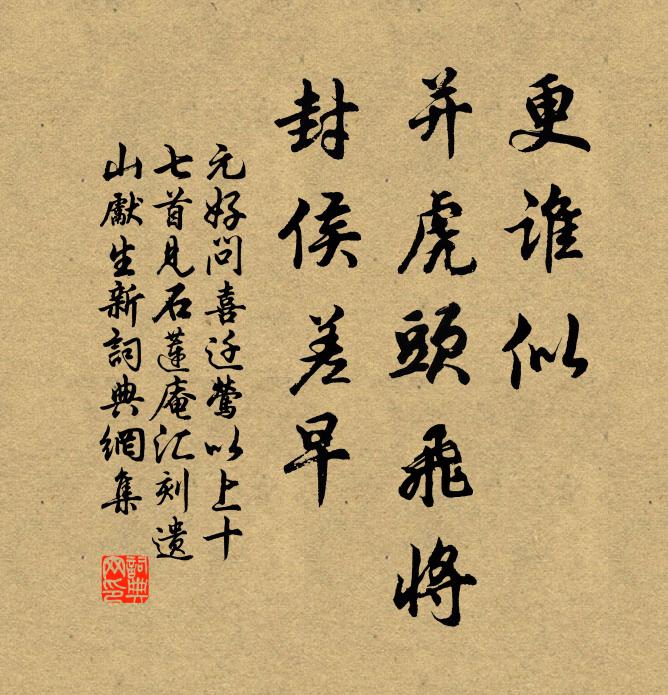 更谁似
并虎頭飛將
封侯差早
元好问喜迁莺以上十
七首見石莲庵汇刻遗
山獻生新詞典網集
詞典网印